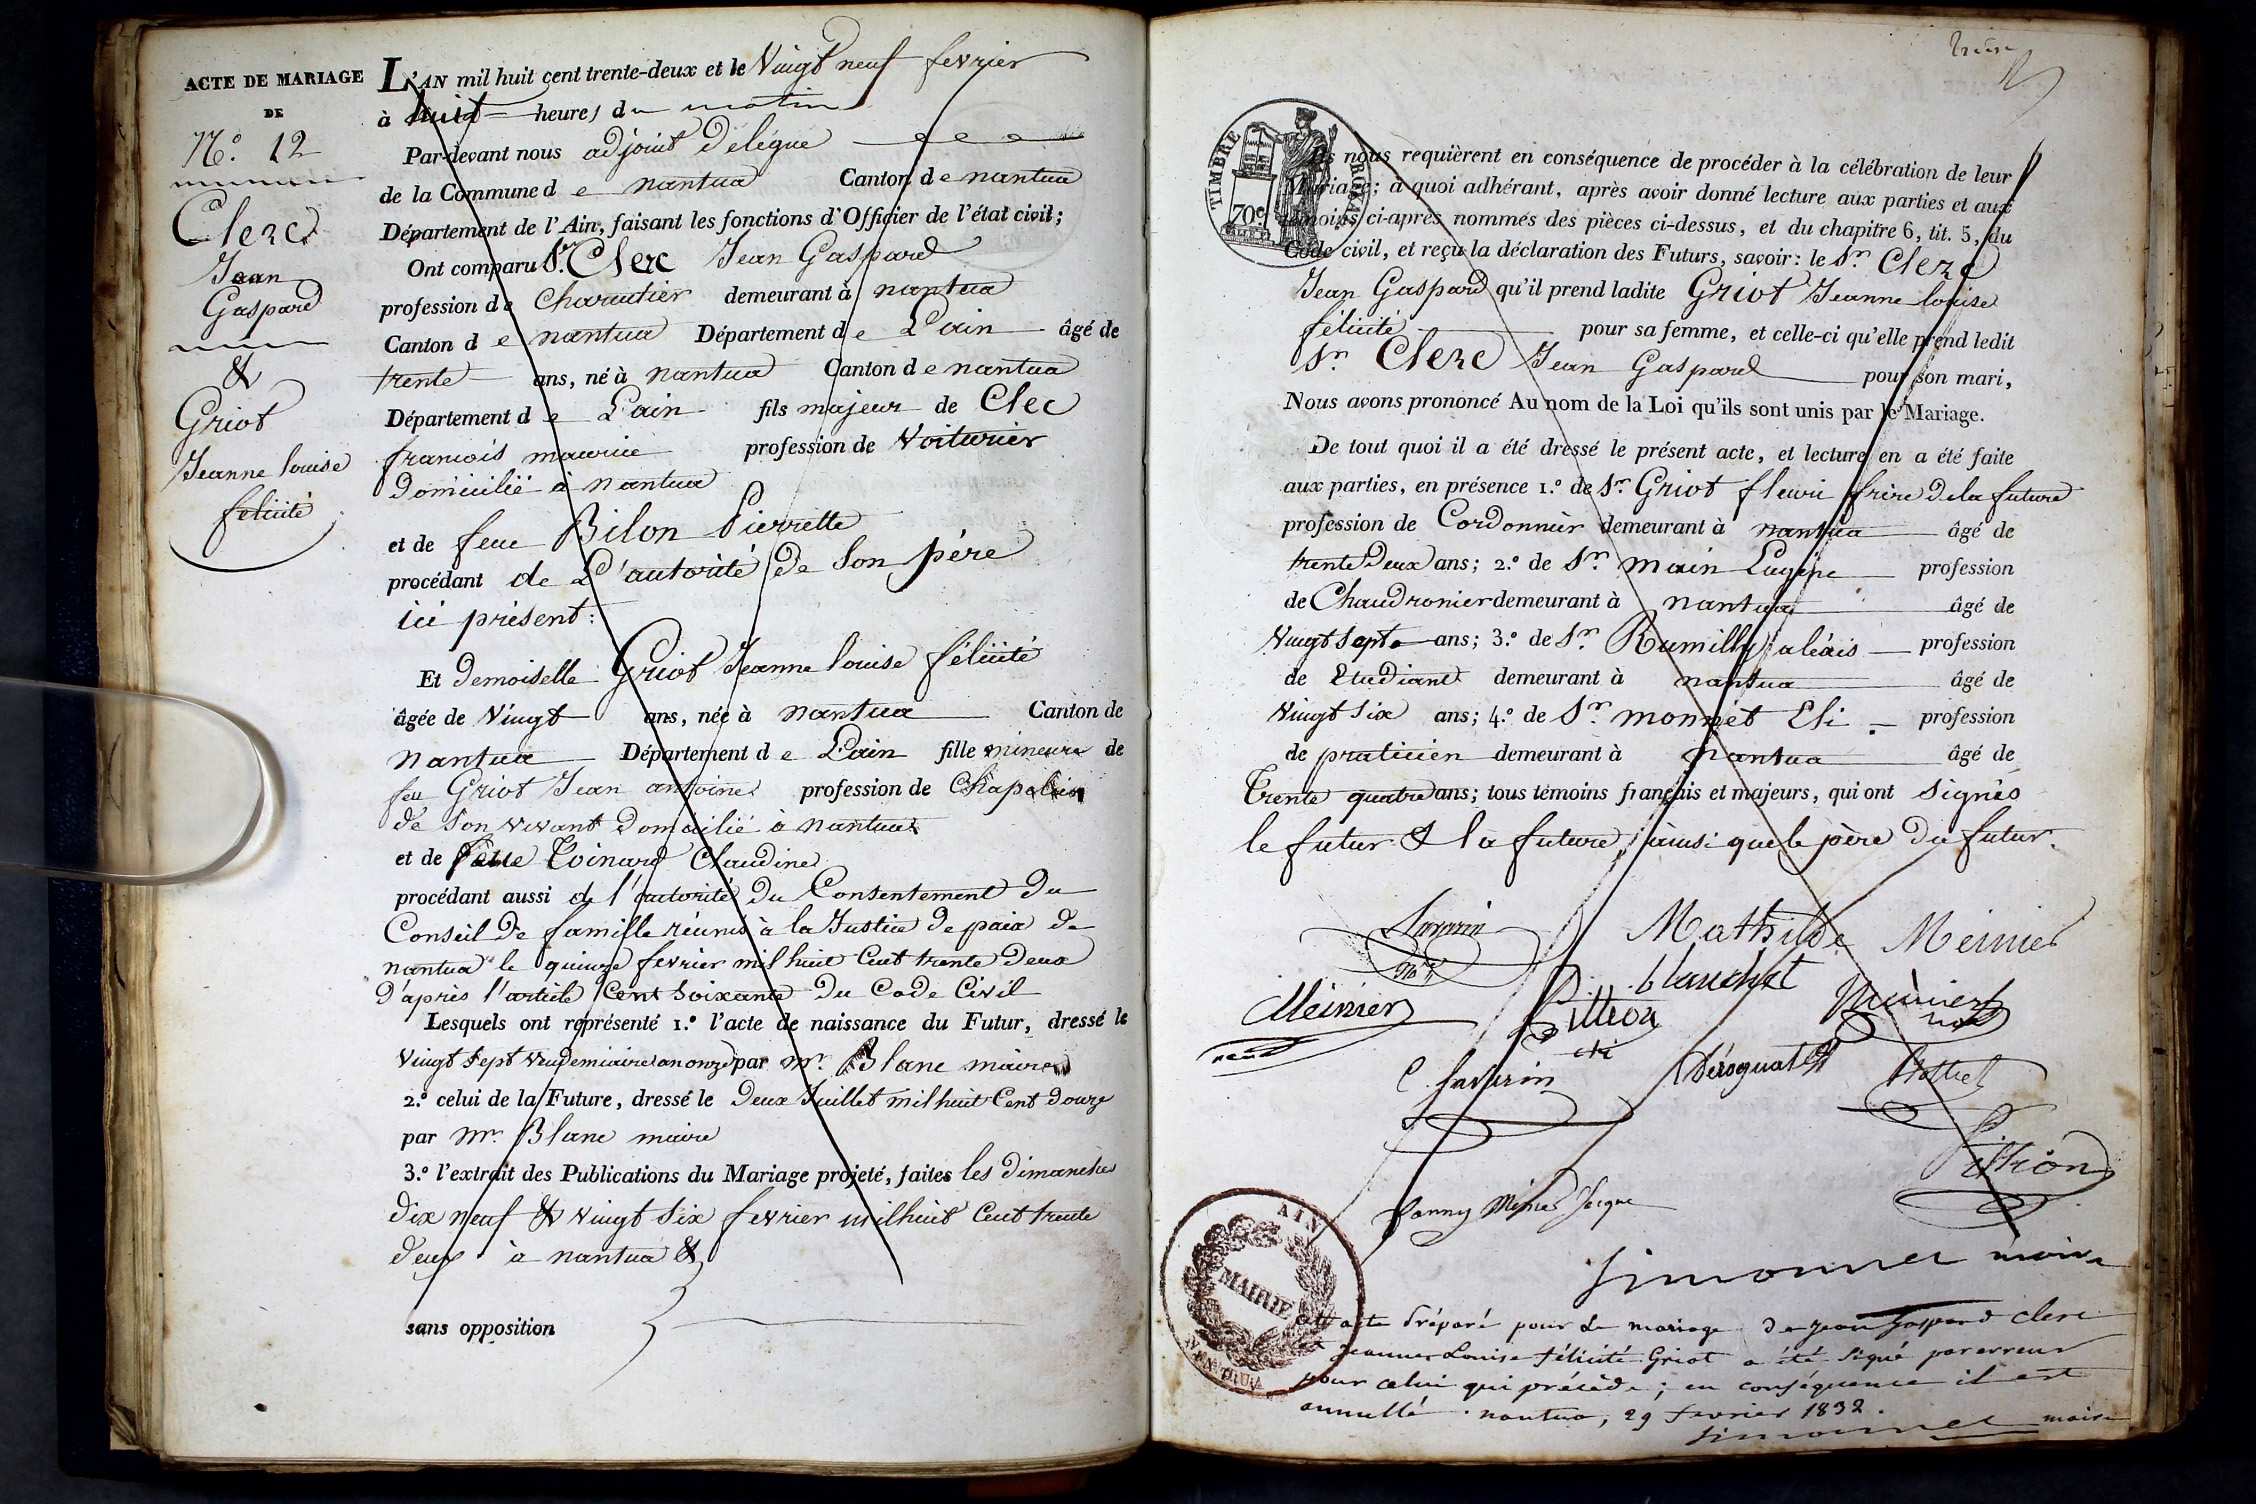 ACTE DE MARIAGE
DE
N.º 12
Clerc
Jean
Gaspard
&
Griot
Jeanne louise
félicité
L'AN mil huit cent trente-deux et le Vingt neuf fevrier
à huit heures du matin
Par-devant nous adjoint délégué
de la Commune de nantua Canton de nantua
Département de l'Ain, faisant les fonctions d'Officier de l'état civil;
Ont comparu Sr. Clerc Jean Gaspard
profession de Charcutier demeurant à nantua
Canton de nantua Département de L'ain âgé de
trente ans, né à nantua Canton de nantua
Département de L'ain fils majeur de Clec
francois maurice profession de Voiturier
Domicilié à nantua
et de feue Bilon Pierrette
procédant de L'autorité de Son père
ici présent:
Et Demoiselle Griot Jeanne louise félicité
âgée de Vingt ans, née à nantua Canton de
nantua Département de L'ain fille mineure de
feu Griot Jean antoine profession de Chapelier
de Son vivant Domicilié à nantua
et de feue Toinard Claudine
procédant aussi de l'autorité du Consentement du
Conseil de famille réunis à la Justice de paix de
nantua le quinze fevrier mil huit Cent trente deux
D'après l'article Cent Soixante du Code Civil
Lesquels ont représenté 1.º l'acte de naissance du Futur, dressé le
Vingt Sept Vendemiaire an onze par mr. Blanc maire
2.º celui de la Future, dressé le Deux Juillet mil huit Cent douze
par mr. Blanc maire
3.º l'extrait des Publications du Mariage projeté, faites les dimanches
dix neuf & vingt Six fevrier mil huit Cent trente
deux à nantua &
sans opposition
TIMBRE ROYAL
70 c
Ils nous requièrent en conséquence de procéder à la célébration de leur
Mariage; à quoi adhérant, après avoir donné lecture aux parties et aux
témoins ci-après nommés des pièces ci-dessus, et du chapitre 6, tit. 5, du
Code civil, et reçu la déclaration des Futurs, savoir: le Sr. Clerc
Jean Gaspard qu'il prend ladite Griot Jeanne louise
félicité pour sa femme, et celle-ci qu'elle prend ledit
Sr. Clerc Jean Gaspard pour son mari,
Nous avons prononcé Au nom de la Loi qu'ils sont unis par le Mariage.
De tout quoi il a été dressé le présent acte, et lecture en a été faite
aux parties, en présence 1.º de Sr. Griot fleuri frère de la future
profession de Cordonnier demeurant à nantua âgé de
trente Deux ans; 2.º de Sr. main Eugène profession
de Chaudronier demeurant à nantua âgé de
Vingt Sept ans; 3.º de Sr. Rumilly aléxis profession
de Etudiant demeurant à nantua âgé de
Vingt Six ans; 4.º de Sr. monnet Eli profession
de praticien demeurant à nantua âgé de
Trente quatre ans; tous témoins français et majeurs, qui ont Signés
le futur & la future, ainsi que le père du futur.
Mathilde Meinier
blanchet
Meinier
C Savarin
Pittion
Simonnet maire
AIN
MAIRIE
NANTUA
Cet acte préparé pour le mariage de Jean Gaspard Clerc
et Jeanne Louise félicité Griot a été signé par erreur
pour celui qui précède; en conséquence il est
annullé. nantua, 29 fevrier 1832.
Simonnet maire